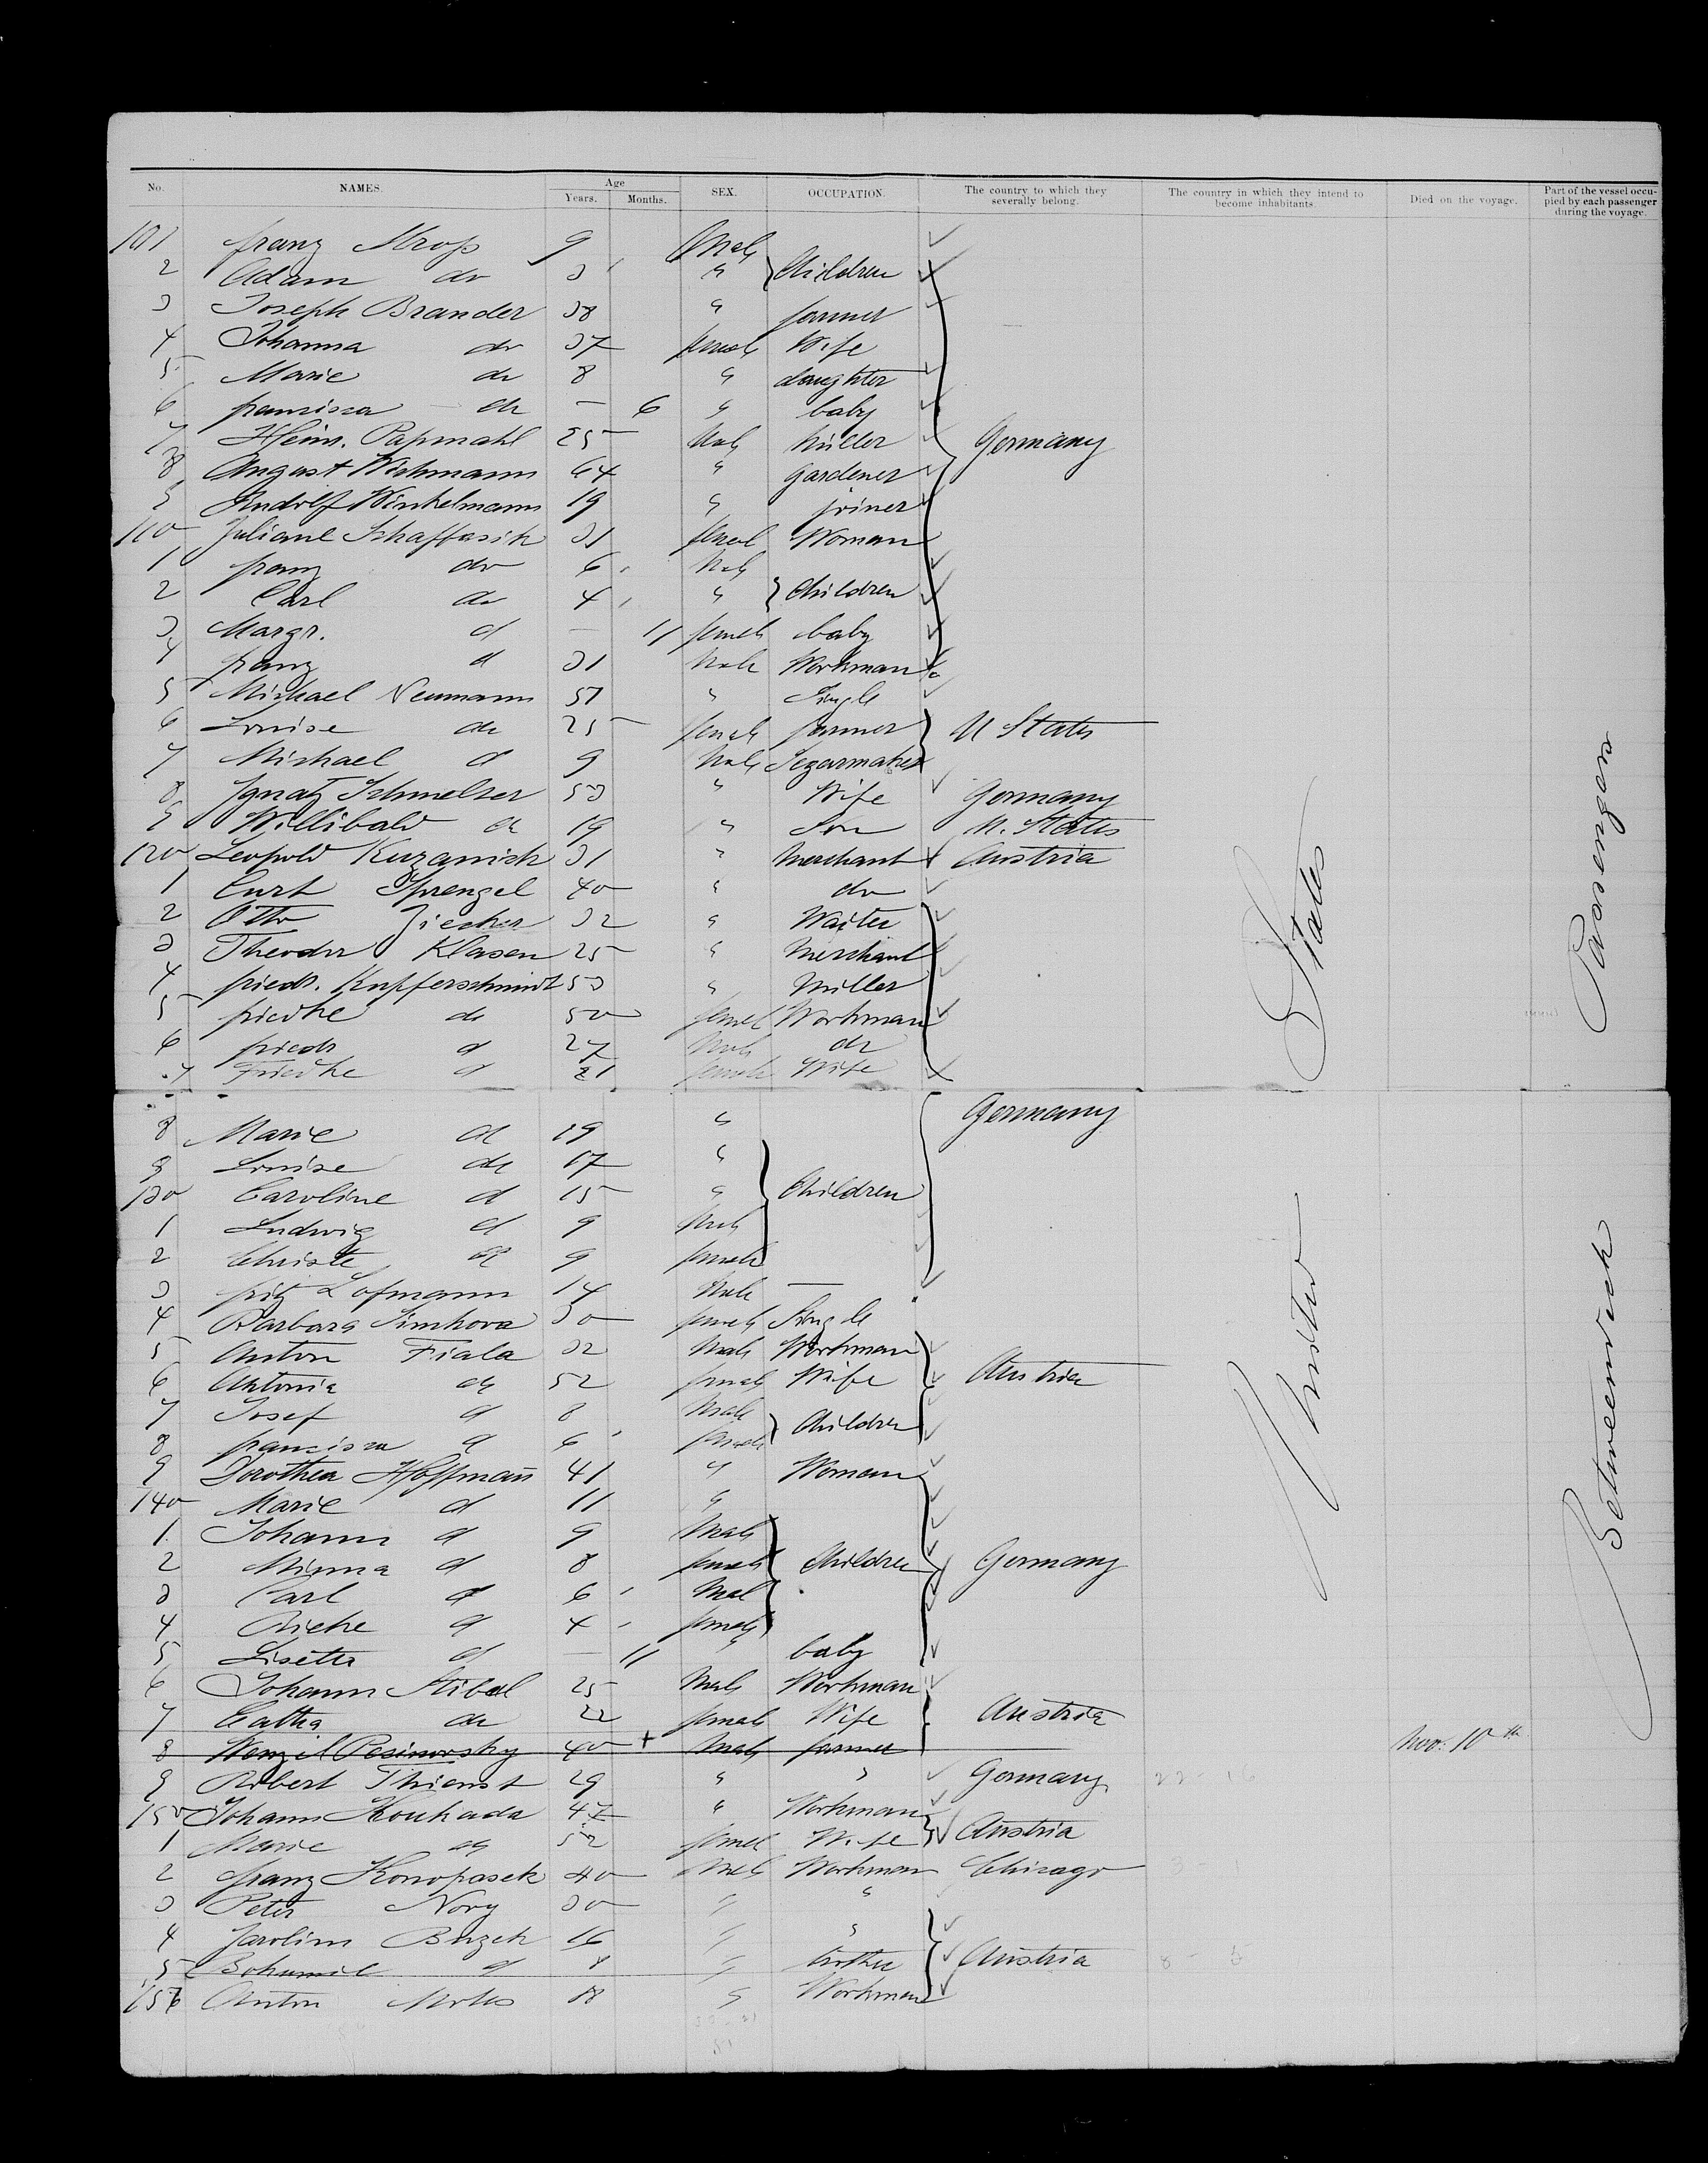 No. NAMES. Age Years. Months. SEX. OCCUPATION. The country to which they severally belong. The country in which they intend to become inhabitants. Died on the voyage. Part of the vessel occupied by each passenger during the voyage.
101 franz 9 Male
2 Adam do 3 " Children
3 Joseph Brander 38 " farmer
4 Johanna do 37 female Wife
5 Marie do 8 " daughter
6 franzisca do — 6 " baby
7 Heinr. Papmahl 25 Male Miller Germany
8 August Wichmann 64 " Gardener
9 Rudolf Winkelmann 19 " joiner
110 Juliane Schaffasik 31 female Woman
1 franz do 6 Male
2 Carl do 4 " Children
3 Margr. d — 11 female baby
4 franz d 31 Male Workman
5 Michael Neumann 51 " Single
6 Louise do 25 female farmer U States
7 Michael d 9 Male Segarmaker
8 Ignatz Schmelzer 53 " Wife Germany
9 Willibald do 19 " Son U. States
120 Leopold Kuzanich 31 " Merchant Austria
1 Curt Sprengel 40 " do
2 Otto Ziecker 32 " Waiter
3 Theodor Klasen 25 " Merchant
4 friedr. Kupferschmidt 53 " Miller
5 friedke do 50 female Workman
6 friedr d 27 Male do
7 Friedke d 21 female Wife
8 Marie d 19 " Germany
9 Louise do 17 "
130 Caroline d 15 " Children
1 Ludwig d 9 Male
2 Christe d 9 female
3 fritz Lofmann 14 Male —
4 Barbara Simkova 30 female Single
5 Anton Fiala 32 Male Workman
6 Antonia do 52 female Wife Austria
7 Josef d 8 Male
8 franzisca d 6 female Children
9 Dorothea Hoffmann 41 " Woman
140 Marie d 11 "
1 Johann d 9 Male
2 Minna d 8 female Children Germany
3 Carl d 6 Male
4 Rieke d 4 female
5 Lisette d — 11 " baby
6 Johann Stibal 25 Male Workman
7 Catha do 22 female Wife Austria
8 Wenzel Pesinowsky 40 + Male farmer Nov. 10th
9 Robert Thienst 29 " " Germany
150 Johann Koukada 47 " Workman
1 Marie do 52 female Wife Austria
2 franz Konopasek 40 Male Workman Chicago
3 Peter Novy 30 " "
4 Jarolim Buzek 16 " "
5 Bohumil d 8 " brother Austria
156 Anton 18 " Workman
United States
Betweendeck Passengers